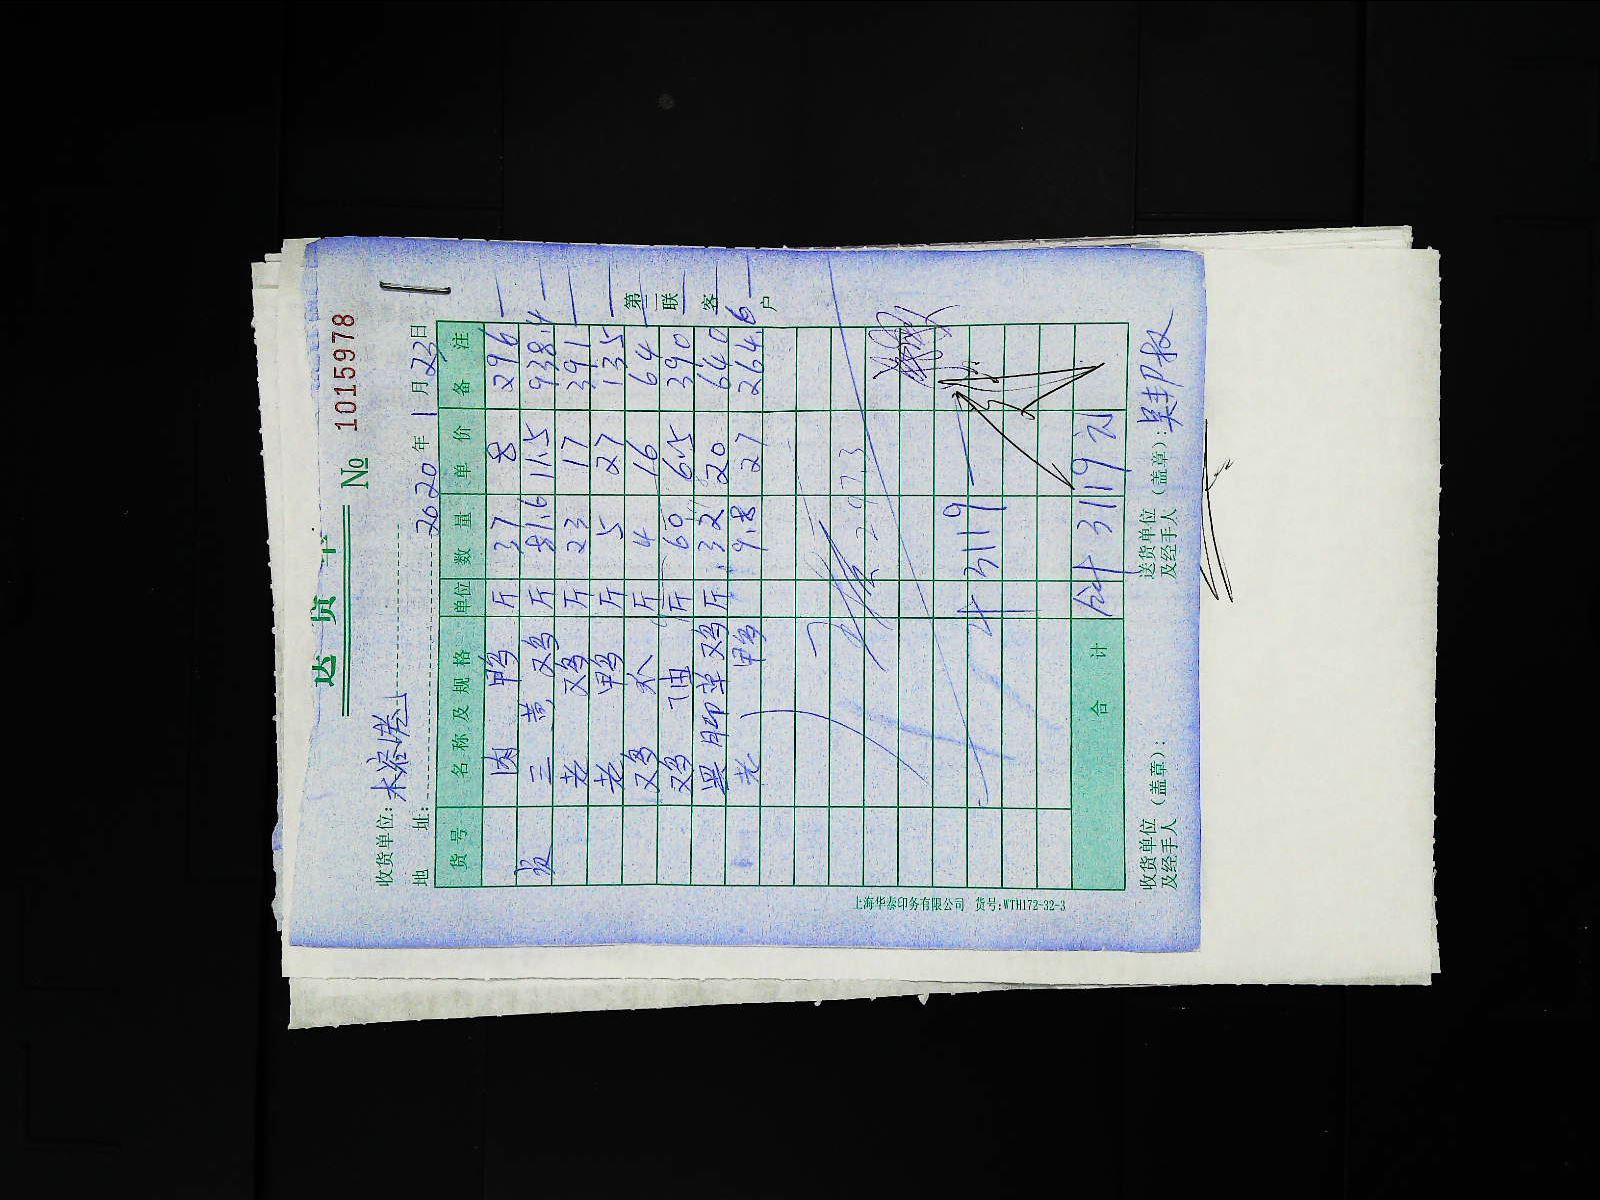 送货单
№ 1015978
收货单位:
2020年1月23日
地 址:
货号 名称及规格 单位 数量 单价 备注
肉鸭 斤 37 8 296
三黄鸡 斤 81.6 11.5 938.4
老鸡 斤 23 17 391
老鸭 斤 5 27 135
鸡 斤 4 16 64
鸡 斤 60 6.5 390
草鸡 斤 32 20 640
老鸭 9.8 27 264.6
297.3
3119
合计 3119元
收货单位及经手人(盖章):
送货单位及经手人(盖章):
第二联 客户
上海华泰印务有限公司 货号:WTH172-32-3